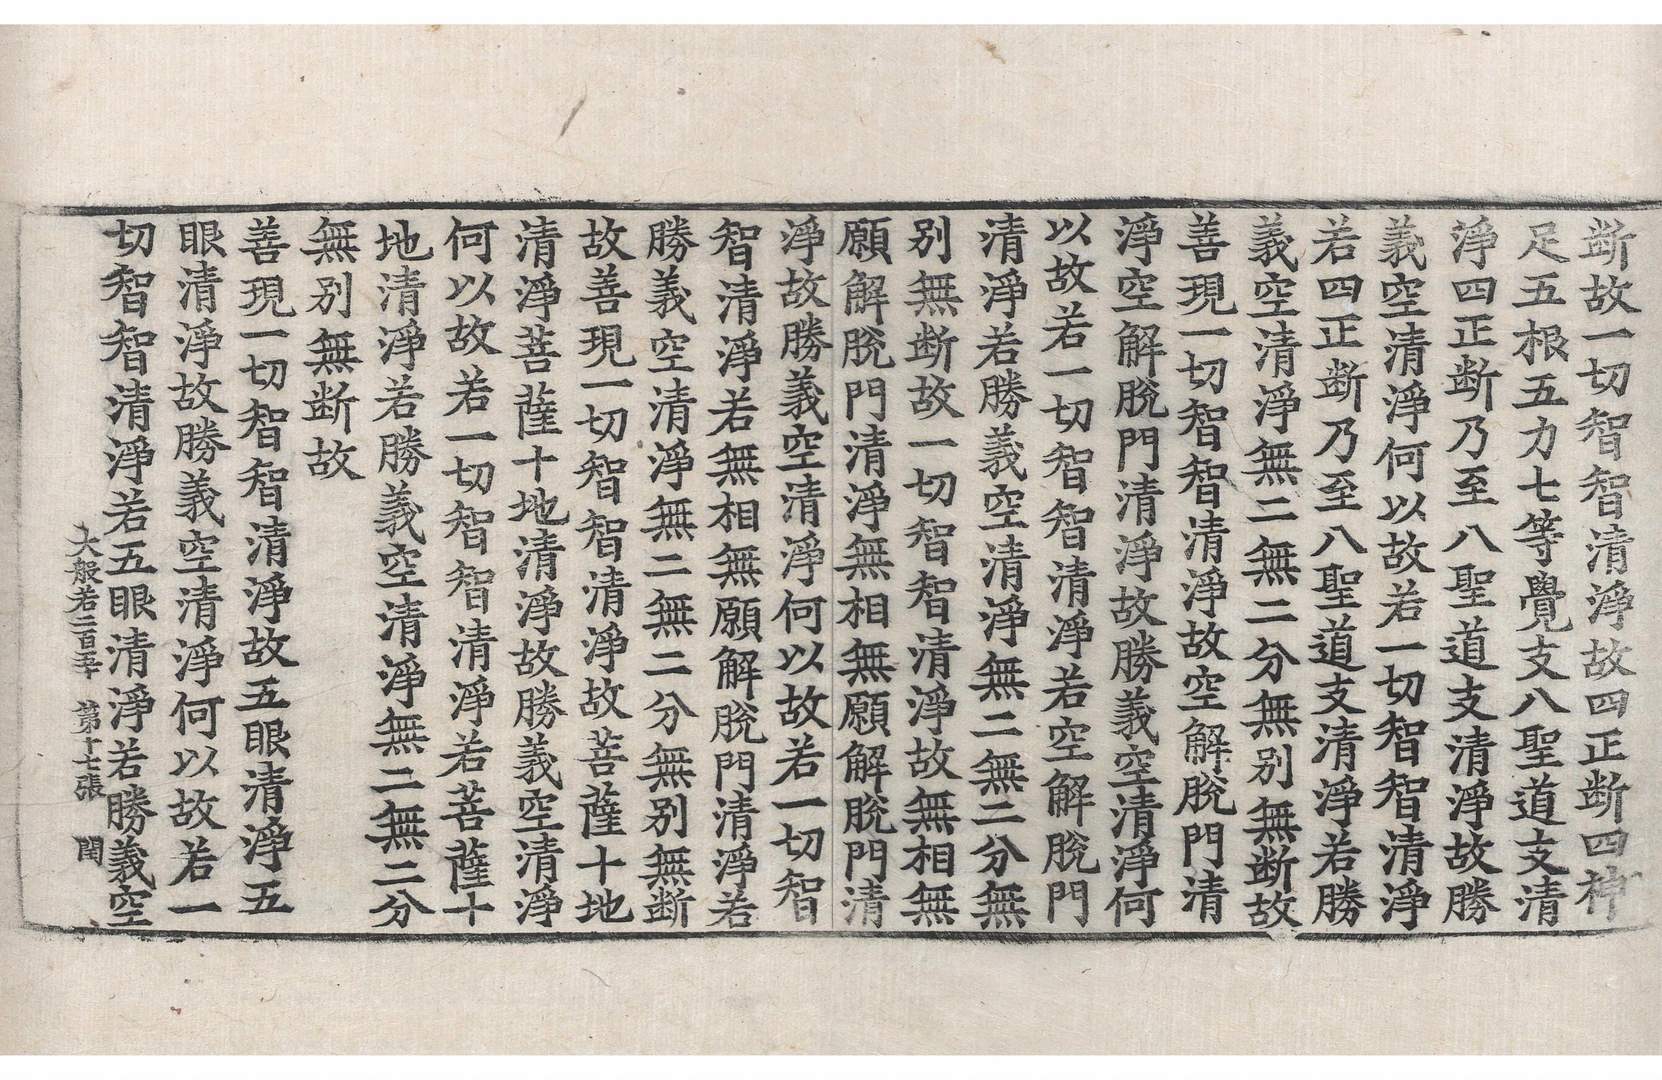 断故一切智智清淨故四正断四神
足五根五力七等覺支八聖道支清
淨四正断乃至八聖道支清淨故勝
義空清淨何以故若一切智智清淨
若四正断乃至八聖道支清淨若勝
義空清淨無二無二分無别無断故
善現一切智智清淨故空解脫門清
淨空解脫門清淨故勝義空清淨何
以故若一切智智清淨若空解脫門
清淨若勝義空清淨無二無二分無
别無断故一切智智清淨故無相無
願解脫門清淨無相無願解脫門清
淨故勝義空清淨何以故若一切智
智清淨若無相無願解脫門清淨若
勝義空清淨無二無二分無别無断
故善現一切智智清淨故菩薩十地
清淨菩薩十地清淨故勝義空清淨
何以故若一切智智清淨若菩薩十
地清淨若勝義空清淨無二無二分
無别無断故
善現一切智智清淨故五眼清淨五
眼清淨故勝義空清淨何以故若一
切智智清淨若五眼清淨若勝義空
大般若二百五十 第十七張 閏